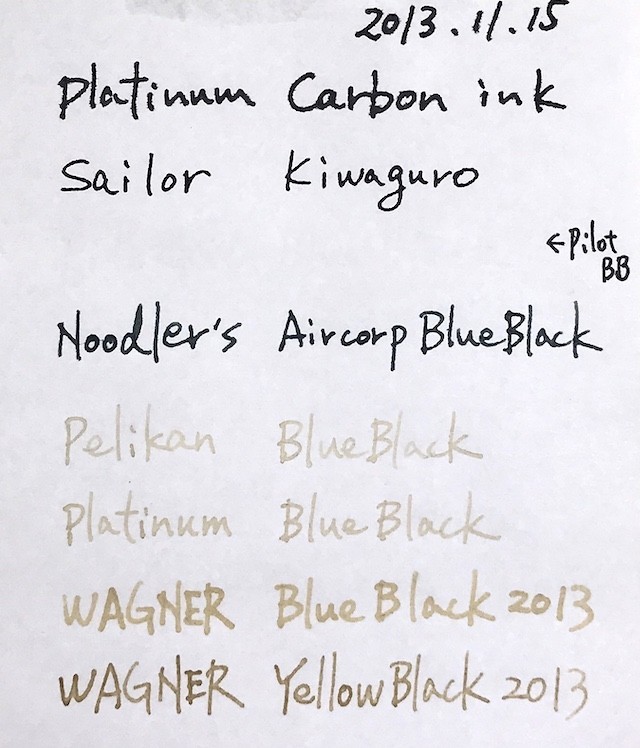 2013.11.15
Platinum Carbon ink
Sailor Kiwaguro
←Pilot
BB
Noodler's Aircorp BlueBlack
Pelikan BlueBlack
Platinum Blue Black
WAGNER Blue Black 2013
WAGNER YellowBlack 2013